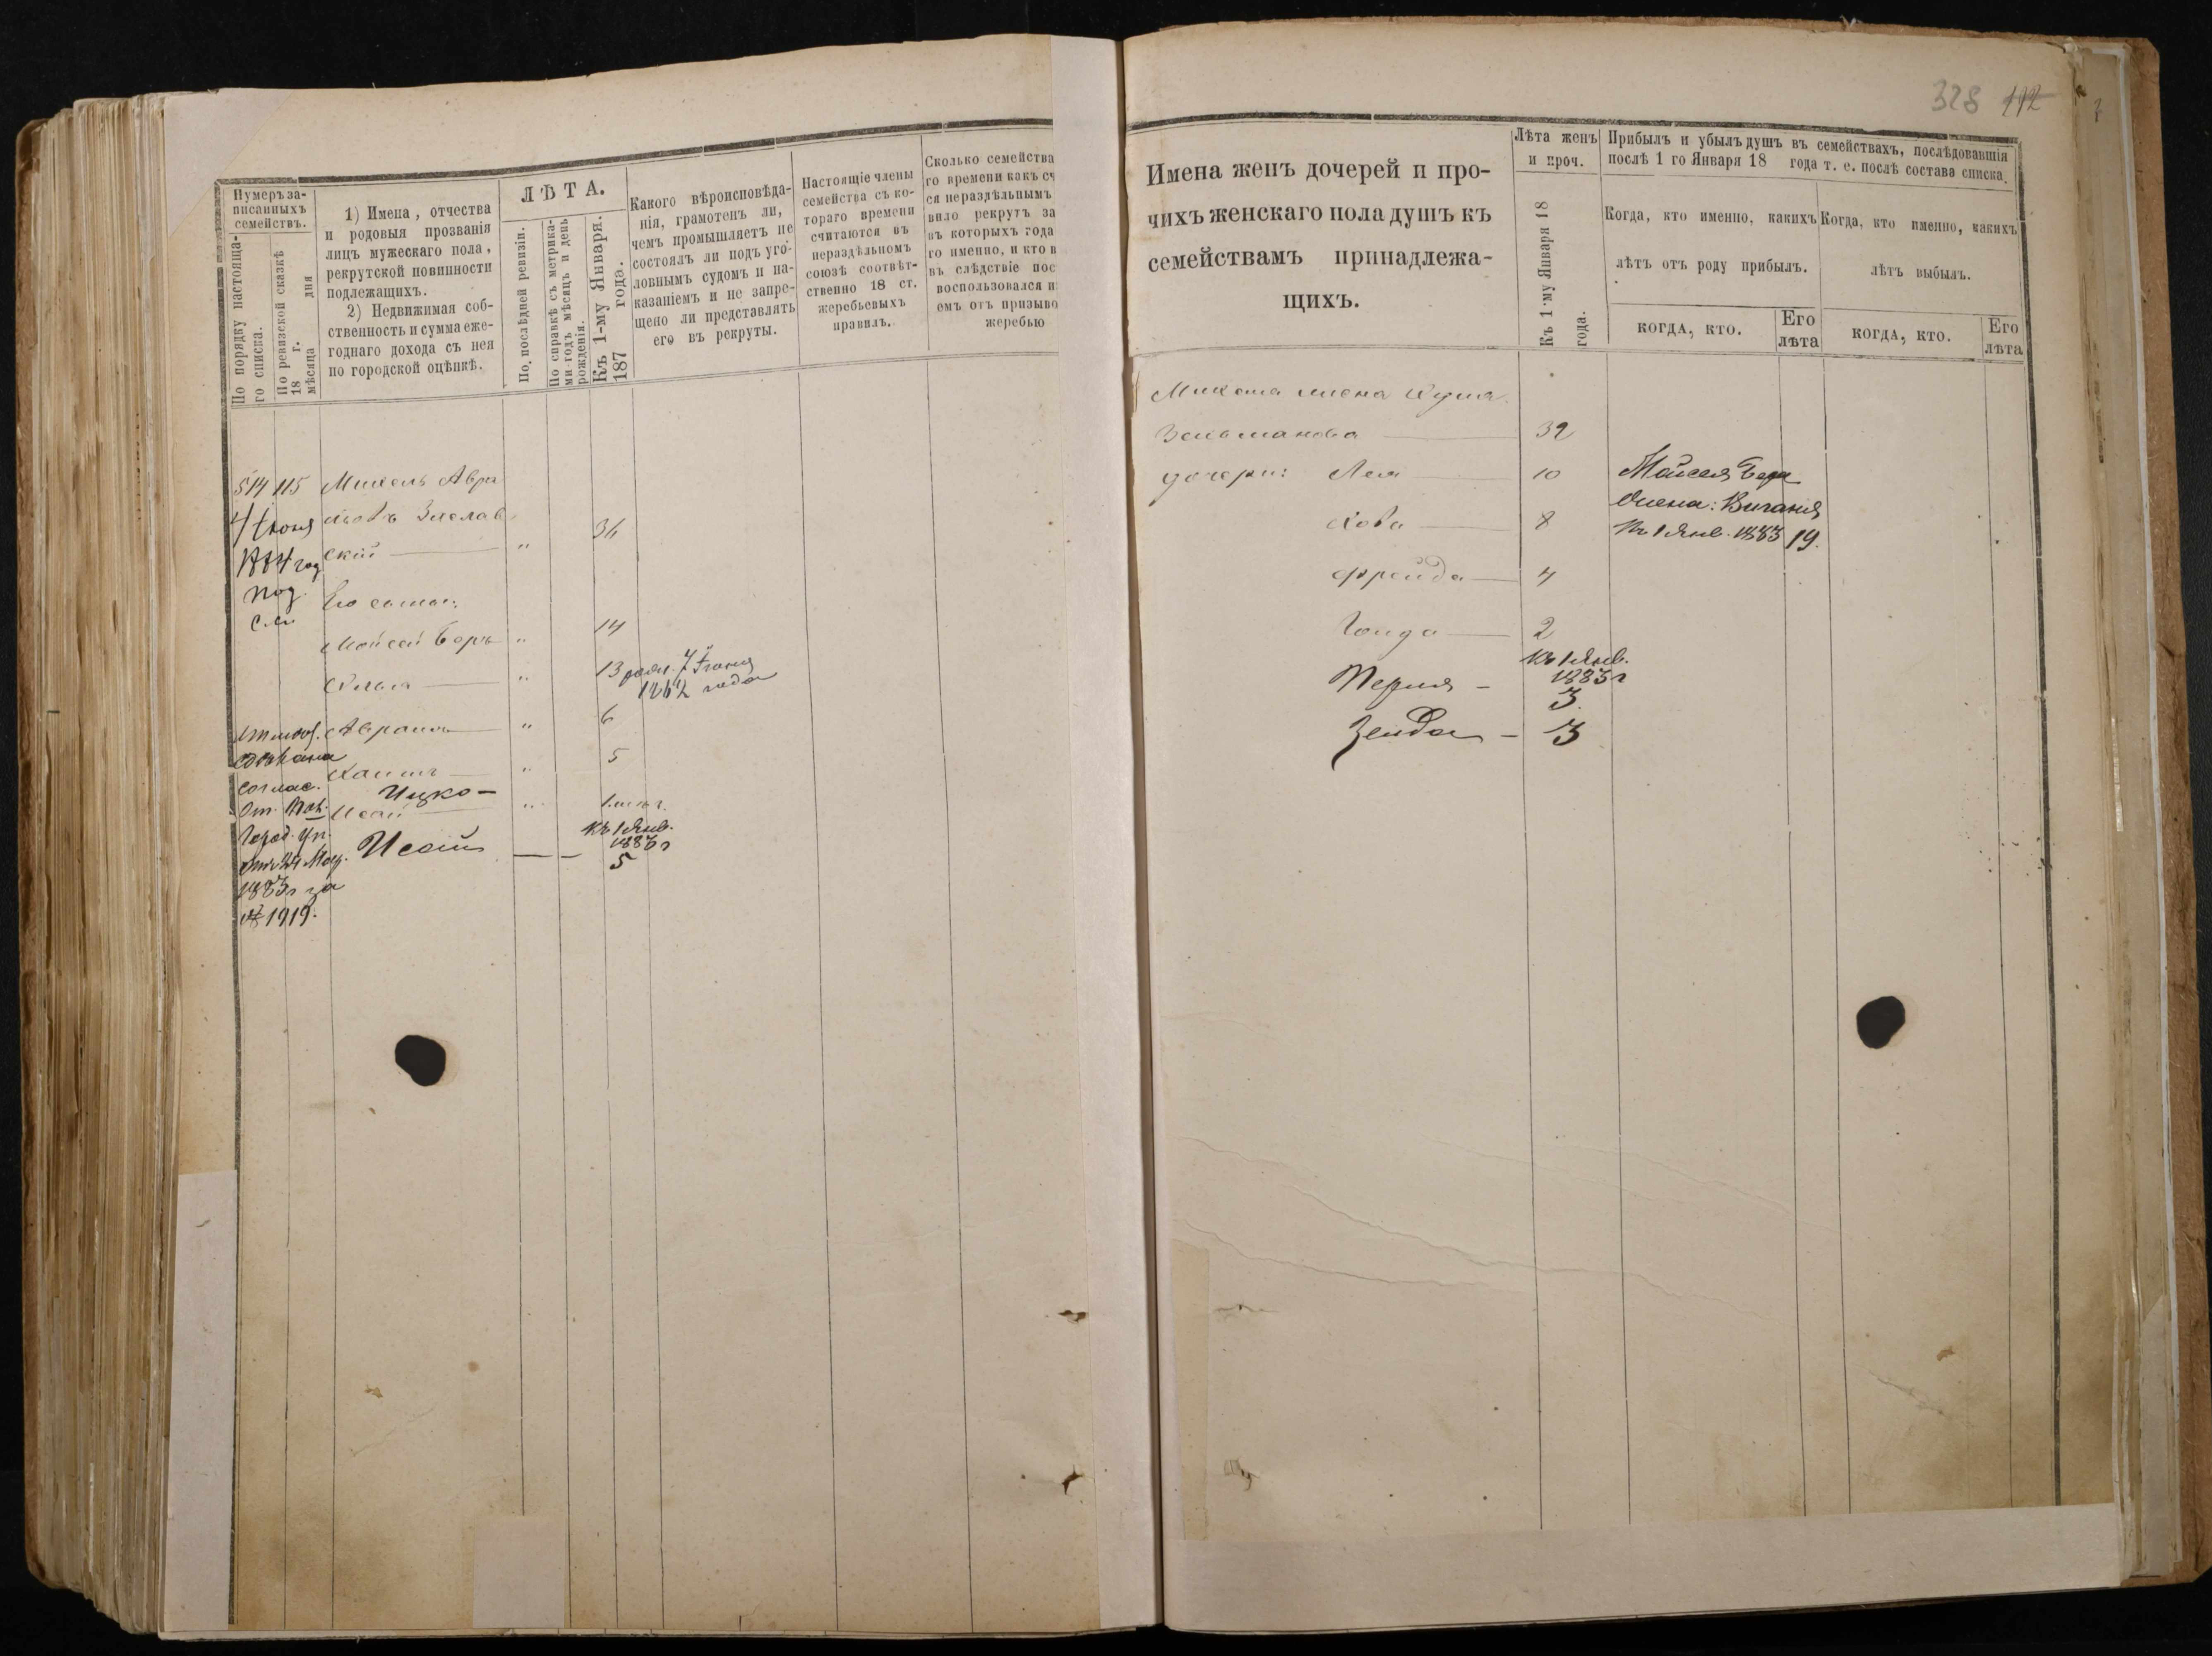 328 112
Нумеръ за-
писанныхъ
семействъ.
По порядку настояща-
го списка.
По ревизской сказкѣ
18 г.
мѣсяца дня
1) Имена, отчества
и родовыя прозванія
лицъ мужескаго пола,
рекрутской повинности
подлежащихъ.
2) Недвижимая соб-
ственность и сумма еже-
годнаго дохода съ нея
по городской оцѣнкѣ.
ЛѢТА.
По послѣдней ревизіи.
По справкѣ съ метрика-
ми годъ мѣсяцъ и день
рожденія.
Къ 1-му Января.
187 года.
Какого вѣроисповѣда-
нія, грамотенъ ли,
чемъ промышляетъ не
состоялъ ли подъ уго-
ловнымъ судомъ и на-
казаніемъ и не запре-
щено ли представлять
его въ рекруты.
Настоящіе члены
семейства съ ко-
тораго времени
считаются въ
нераздѣльномъ
союзѣ соотвѣт-
ственно 18 ст.
жеребьевыхъ
правилъ.
Сколько семейства
го времени какъ сч
ся нераздѣльнымъ
вило рекрутъ за
въ которыхъ года
го именно, и кто в
въ слѣдствіе пос
воспользовался и
емъ отъ призыво
жеребью
514 115 Михель Авра
4 Іюня
1884 год
ский " 36
Его сыновья:
Мойсей Беръ " 14
" 13 7 Іюня
1862 года
Авраамъ " 6
Хаимъ " 5
соглас.
Ицко -
Город. Уп.
1883 г за
№ 1919.
Исай — — Къ 1 Янв.
1883 г
5
Имена женъ дочерей и про-
чихъ женскаго пола душъ къ
семействамъ принадлежа-
щихъ.
Лѣта женъ
и проч.
Къ 1-му Января 18
года.
Прибылъ и убылъ душъ въ семействахъ, послѣдовавшія
послѣ 1 го Января 18 года т. е. послѣ состава списка.
Когда, кто именно, какихъ
лѣтъ отъ роду прибылъ.
КОГДА, КТО.
Его
лѣта
Когда, кто именно, какихъ
лѣтъ выбылъ.
КОГДА, КТО.
Его
лѣта
Михеля жена
Зельманова 32
дочери: Лея 10
Хова 8
Фрейда 4
Голда 2
Къ 1 Янв.
1883 г
Перля - 3
Зелда - 3
Мойсея Бера
жена:
Къ 1 Янв. 1883 19.